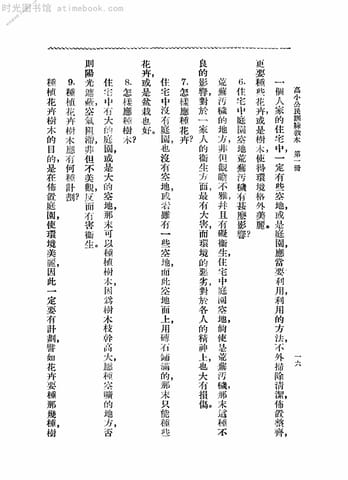 时光图书馆
高小公民訓練教本　第一冊
一六
一個人家的住宅中一定有些空地或是庭園應當要利用利用的方法不外掃除清潔佈置整齊，
更要種些花卉或是樹木使得環境格外美麗。
6. 住宅中庭園空地荒蕪汚穢有甚麼影響？
荒蕪汚穢的地方非但觀瞻不雅并且有礙衞生住宅中庭園空地倘使是荒蕪汚穢，那末這種不
良的影響對於一家人的衞生方面最有大害而環境的惡劣對於各人的精神上也大有損傷。
7. 怎樣應種花卉？
住宅中沒有庭園也沒有空地或者雖有一些空地而此空地面上用磚石鋪滿的，那末只能種些
花卉或是盆栽也好。
8. 怎樣應種樹木？
住宅中有大的庭園或是大的空地，那末可以種植樹木，因爲樹木枝幹高大應種空曠的地方，否
則陽光遮蔽空氣阻礙非但不美觀反而有害衞生。
9. 種植花卉樹木應有何種計劃？
種植花卉樹木的目的是在佈置庭園，使環境美麗，因此一定要有計劃，譬如花卉要種那幾種，樹